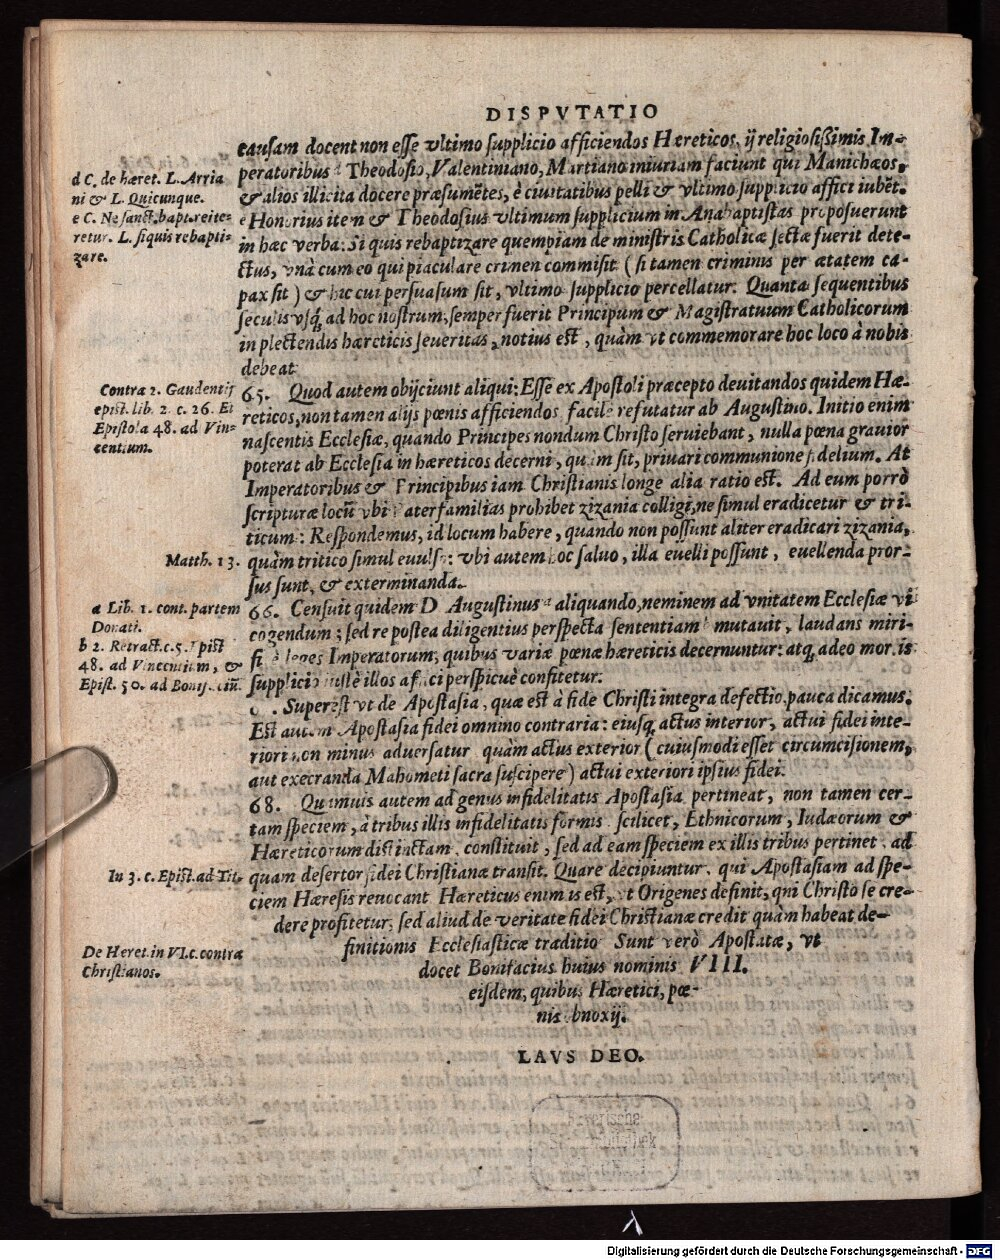 DISPVTATIO
causam docent non esse vltimo supplicio afficiendos Hæreticos, ij religiosißimis Im-
peratoribus d Theodosio, Valentiniano, Martiano iniuriam faciunt qui Manichæos,
& alios illicita docere præsumẽtes, è ciuitatibus pelli & vltimo supplicio affici iubẽt.
e Honorius item & Theodosius vltimum supplicium in Anabaptistas proposuerunt
in hæc verba: Si quis rebaptizare quempiam de ministris Catholicæ sectæ fuerit dete-
ctus, vnà cum eo qui piaculare crimen commisit (si tamen criminis per ætatem ca-
pax sit) & hic cui persuasum sit, vltimo supplicio percellatur. Quanta sequentibus
seculis vsq́ ad hoc nostrum, semper fuerit Principum & Magistratuum Catholicorum
in plectendis hæreticis seueritas, notius est, quàm vt commemorare hoc loco à nobis
debeat
d C. de hæret. L. Arria
ni & L. Quicunque.
e C. Ne sanct. bapt. reite-
retur. L. si quis rebapti-
zare.
65. Quod autem obijciunt aliqui: Esse ex Apostoli præcepto deuitandos quidem Hæ-
reticos, non tamen alijs pœnis afficiendos facilè refutatur ab Augustino. Initio enim
nascentis Ecclesiæ, quando Principes nondum Christo seruiebant, nulla pœna grauior
poterat ab Ecclesia in hæreticos decerni, quàm sit, priuari communione fidelium. At
Imperatoribus & Principibus iam Christianis longè alia ratio est. Ad eum porrò
scripturæ locũ vbi Paterfamilias prohibet zizania colligi, ne simul eradicetur & tri-
ticum: Respondemus, id locum habere, quando non possunt aliter eradicari zizania,
quàm tritico simul euulso: vbi autem hoc saluo, illa euelli possunt, euellenda pror-
sus sunt, & exterminanda.
Contra 2. Gaudentij
epist. lib. 2. c. 26. Et
Epistola 48. ad Vin-
centium.
Matth. 13.
66. Censuit quidem D Augustinus a aliquando, neminem ad vnitatem Ecclesiæ vi
cogendum; sed re postea diligentius perspecta sententiam b mutauit, laudans miri-
ficè leges Imperatorum, quibus variæ pœnæ hæreticis decernuntur: atq́ adeo mortis
supplicio iustè illos affici perspicuè confitetur.
a Lib. 1. cont. partem
Donati.
b 2. Retract. c. 5. Epist
48. ad Vincentium, &
Epist. 50. ad Bonifaciũ.
Superest vt de Apostasia, quæ est à fide Christi integra defectio, pauca dicamus.
Est autem Apostasia fidei omnino contraria: eiusq́ actus interior, actui fidei inte-
riori non minus aduersatur quàm actus exterior (cuiusmodi esset circumcisionem,
aut execranda Mahometi sacra suscipere) actui exteriori ipsius fidei.
68. Quamuis autem ad genus infidelitatis Apostasia pertineat, non tamen cer-
tam speciem, à tribus illis infidelitatis formis scilicet, Ethnicorum, Iudæorum &
Hæreticorum distinctam constituit, sed ad eam speciem ex illis tribus pertinet, ad
quam desertor fidei Christianæ transit. Quare decipiuntur, qui Apostasiam ad spe-
ciem Hæresis reuocant Hæreticus enim is est, vt Origenes definit, qui Christo se cre-
dere profitetur, sed aliud de veritate fidei Christianæ credit quàm habeat de-
finitionis Ecclesiasticæ traditio Sunt verò Apostatæ, vt
docet Bonifacius huius nominis VIII.
eisdem, quibus Hæretici, pœ-
nis obnoxij.
In 3. c. Epist. ad Tit.
De Heret. in VI. c. contra
Christianos.
LAVS DEO.
Bayerische
Digitalisierung gefördert durch die Deutsche Forschungsgemeinschaft - DFG